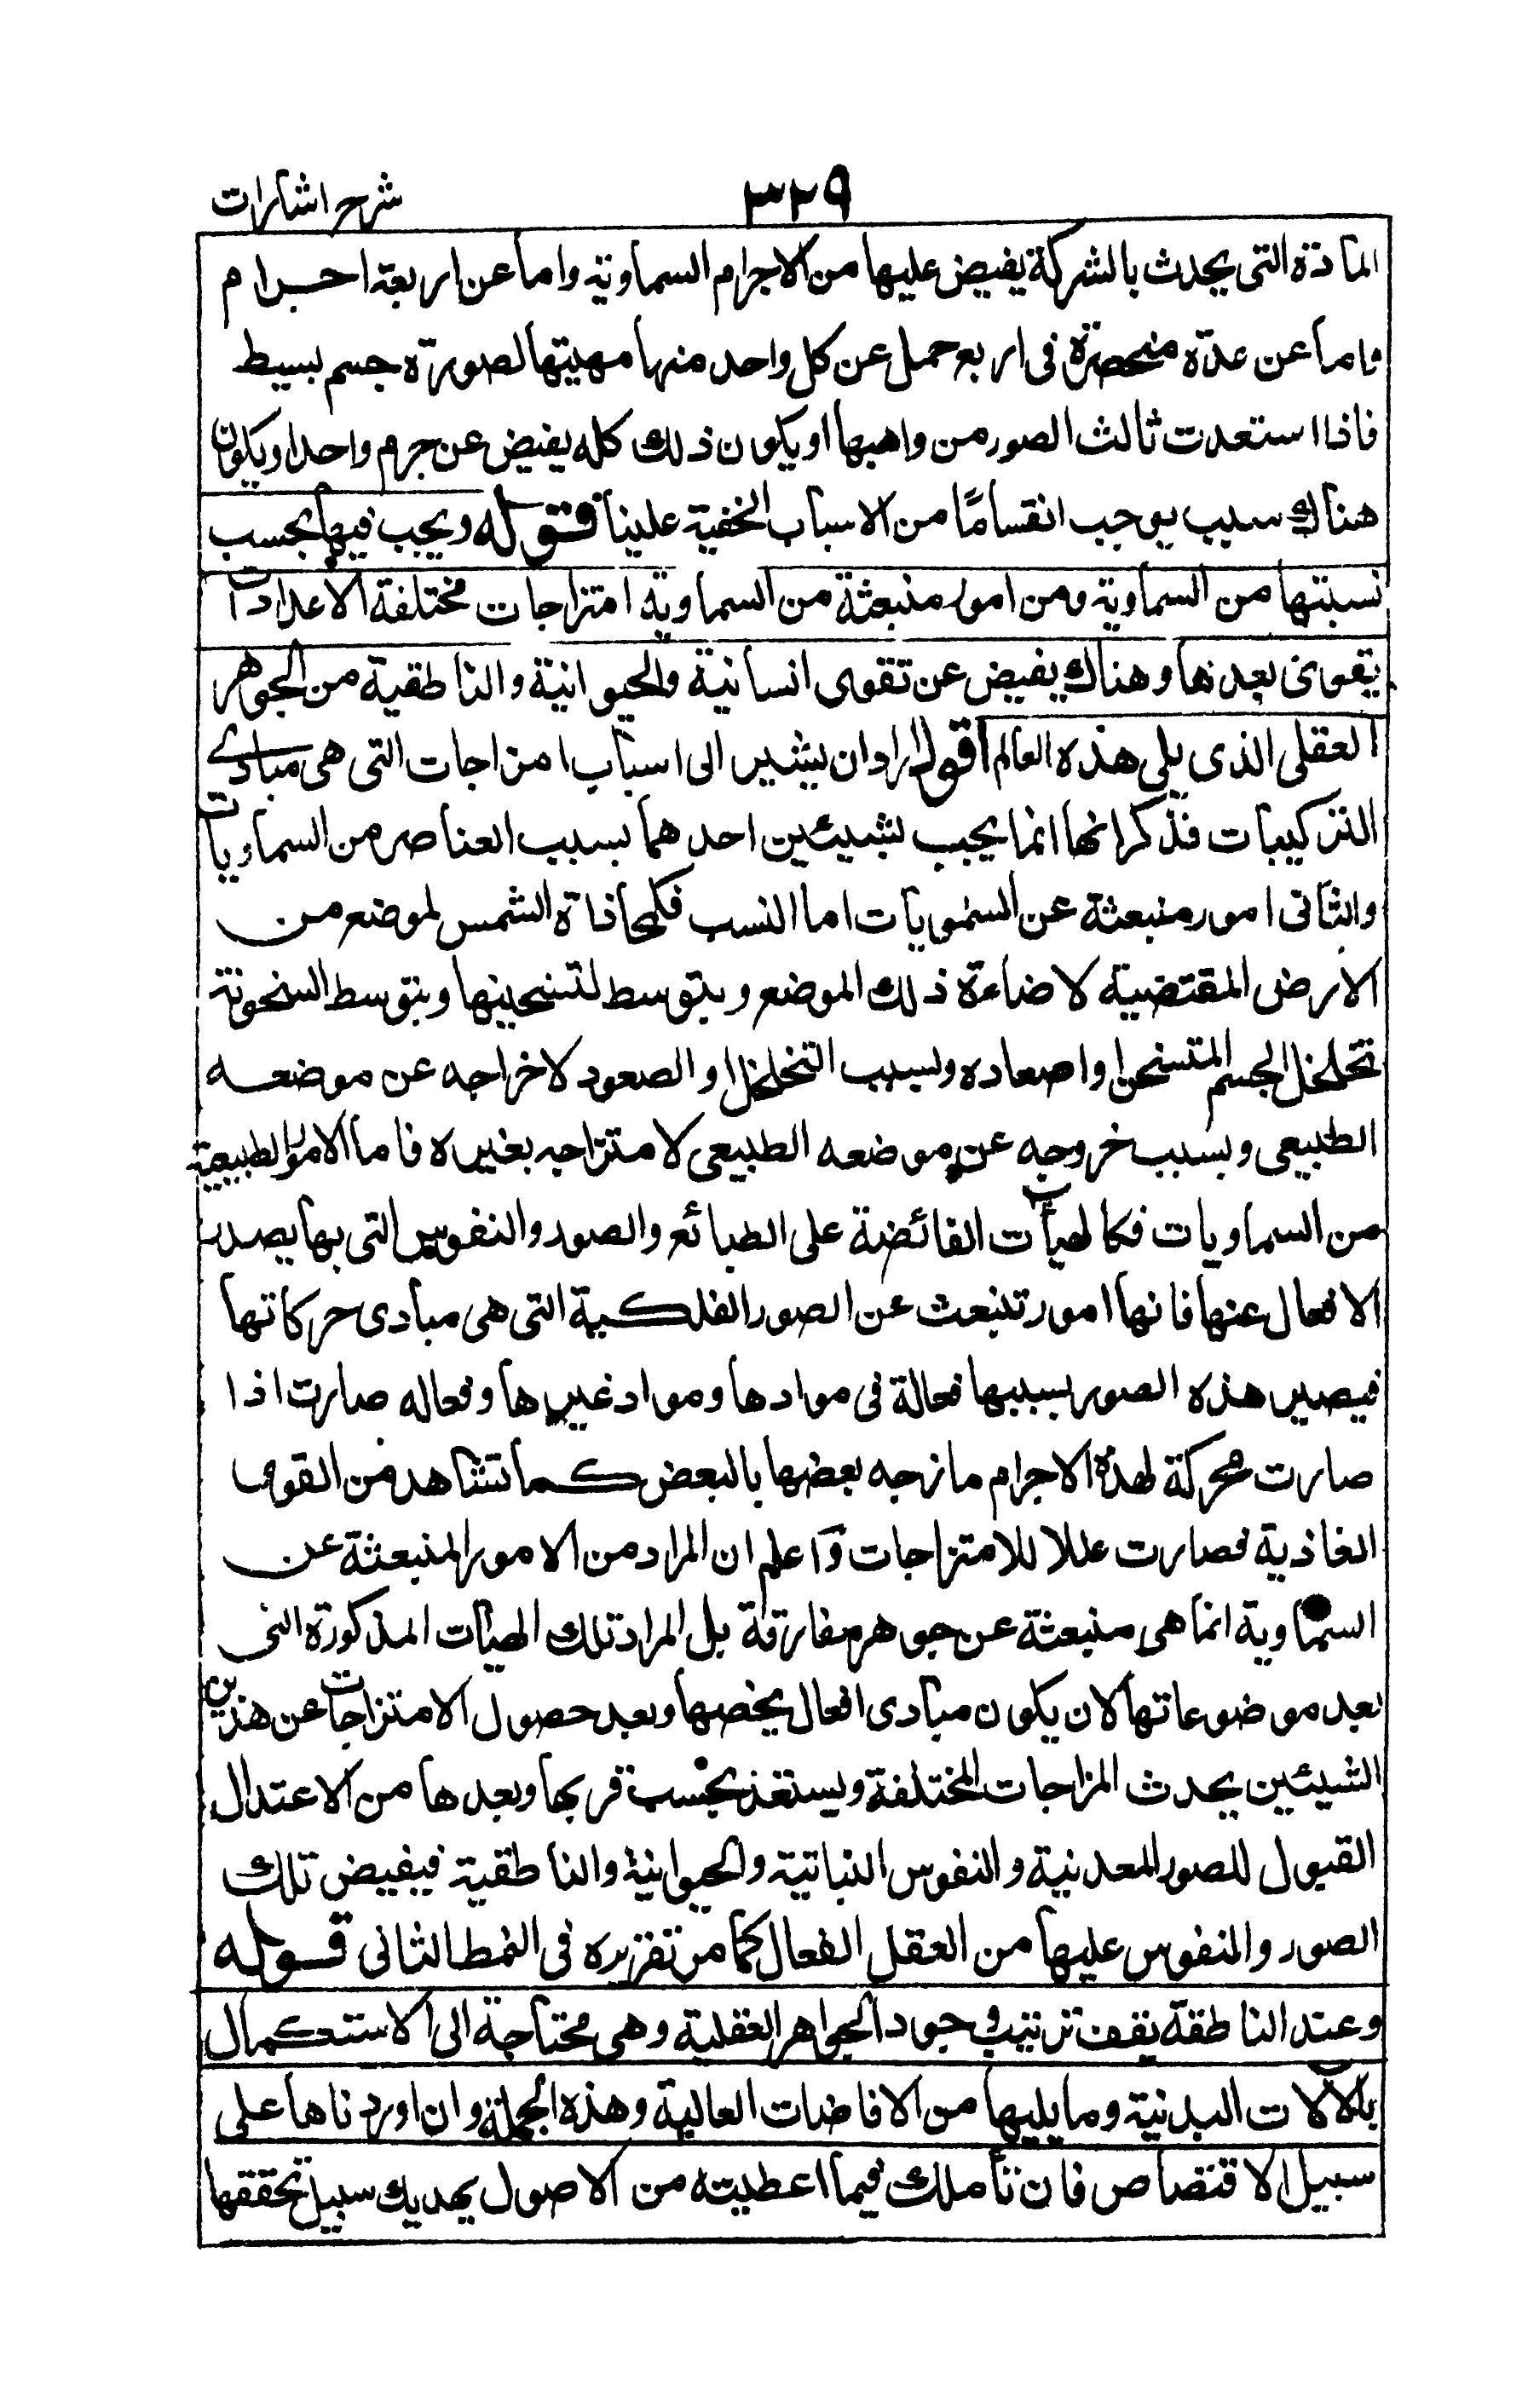 شرح اشارات
٣٢٩
المادة التى يحدث بالشركة يفيض عليها من الاجرام السماوية واما عن اربعة اجرام
واما عن عدة منحصرة فى اربع حمل عن كل واحد منها مهيتها لصورة جسم بسيط
فاذا استعدت ثالث الصور من واهبها او يكون ذلك كله يفيض عن جرم واحد او يكون
هناك سبب يوجب انقساما من الاسباب الخفية علينا قوله ويجب فيها بحسب
نسبتها من السماوية ومن امور منبعثة من السماوية امتزاجات مختلفة الاعدادات
يقوى بعدها وهناك يفيض عن تقوى انسانية والحيوانية والناطقية من الجوهر
العقلى الذى يلى هذه العالم اقول اراد ان يشير الى اسباب امزاجات التى هى مبادى
التركيبات فذكر انها انما يجب بشيئين احدهما بسبب العناصر من السماويات
والثانى امور منبعثة عن السمويات اما النسب فكمحاذاة الشمس لموضع من
الارض المقتضية لاضاءة ذلك الموضع وبتوسط لتسخينها وبتوسط السخونة
تخلخل الجسم المتسخن او اصعاده وبسبب التخلخل او الصعود لاخراجه عن موضعه
الطبيعى وبسبب خروجه عن موضعه الطبيعى لامتزاجه بغيره فاما الامور الطبيعية
من السماويات فكالهيأت الفائضة على الطبائع والصور والنفوس التى بها يصدر
الافعال عنها فانها امور تنبعث عن الصور الفلكية التى هى مبادى حركاتها
فيصير هذه الصور بسببها فعالة فى موادها ومواد غيرها وفعاله صارت اذا
صارت محركة لهذه الاجرام مازجه بعضها بالبعض كما تشاهد من القوى
الغاذية فصارت عللا للامتزاجات واعلم ان المراد من الامور المنبعثة عن
السماوية انما هى منبعثة عن جوهر مفارقة بل المراد تلك الهيأت المذكورة التى
بعد موضوعاتها لان يكون مبادى افعال يخصها وبعد حصول الامتزاجات عن هذين
الشيئين يحدث المزاجات المختلفة ويستعد بحسب قربها وبعدها من الاعتدال
القبول للصور المعدنية والنفوس النباتية والحيوانية والناطقية فيفيض تلك
الصور والنفوس عليها من العقل الفعال كما مر تقريره فى النمط الثانى قوله
وعند الناطقة يقف ترتيب وجود الجواهر العقلية وهى محتاجة الى الاستكمال
بالآلات البدنية وما يليها من الافاضات العالية وهذه الجملة وان اوردناها على
سبيل الاقتصاص فان تأملك فيما اعطيته من الاصول يهديك سبيل تحققها